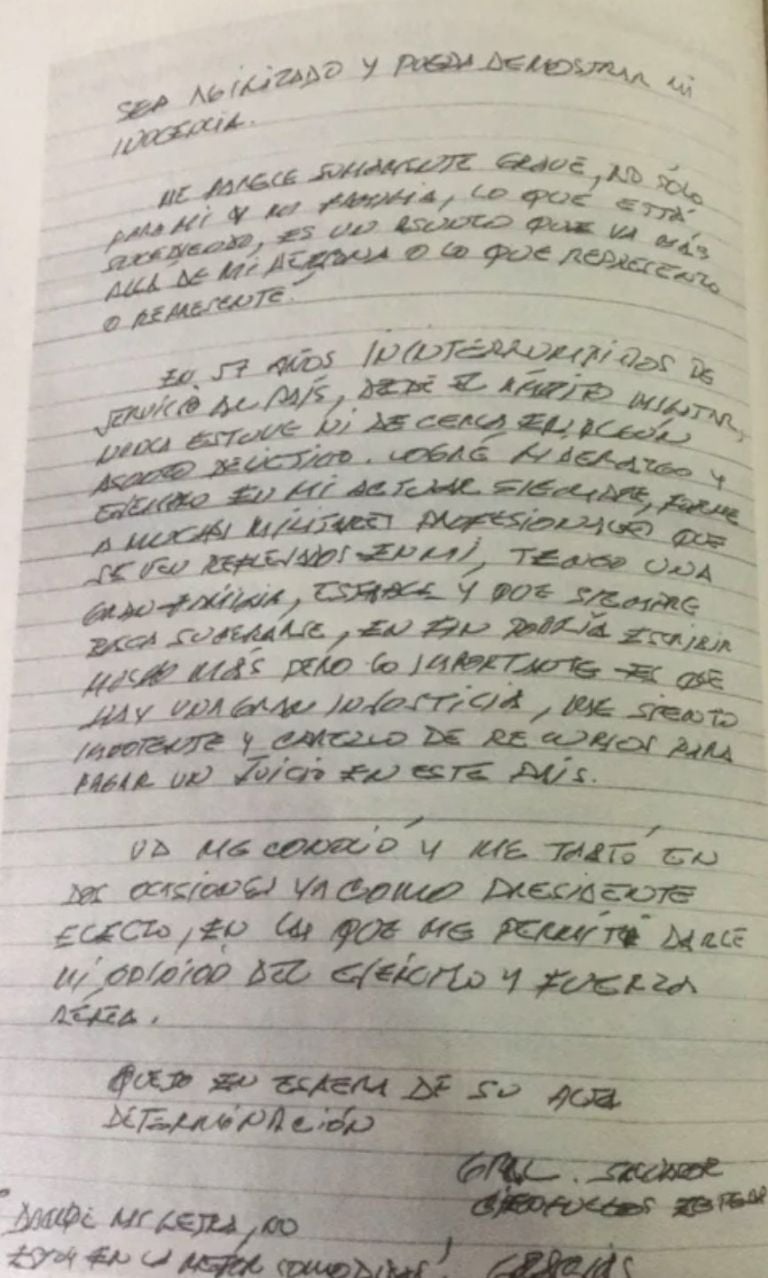 SEA AGILIZADO Y PUEDA DEMOSTRAR MI
INOCENCIA.
ME PARECE SUMAMENTE GRAVE, NO SÓLO
PARA MI Y MI FAMILIA, LO QUE ESTÁ
SUCEDIENDO, ES UN ASUNTO QUE VA MÁS
ALLÁ DE MI PERSONA O LO QUE REPRESENTO
O REPRESENTÉ.
EN 57 AÑOS ININTERRUMPIDOS DE
SERVICIO AL PAÍS, DESDE EL ÁMBITO MILITAR,
NUNCA ESTUVE NI DE CERCA EN ALGÚN
ASUNTO DELICTIVO. LOGRÉ LIDERAZGO Y
EJEMPLO EN MI ACTUAR SIEMPRE, FORMÉ
A MUCHOS MILITARES PROFESIONALES QUE
SE VEN REFLEJADOS EN MÍ, TENGO UNA
GRAN FAMILIA, ESTABLE Y QUE SIEMPRE
BUSCA SUPERARSE, EN FIN PODRÍA ESCRIBIR
MUCHO MÁS PERO LO IMPORTANTE ES QUE
HAY UNA GRAN INJUSTICIA, ME SIENTO
IMPOTENTE Y CAREZCO DE RECURSOS PARA
PAGAR UN JUICIO EN ESTE PAÍS.
UD ME CONOCIÓ Y ME TRATÓ EN
DOS OCASIONES YA COMO PRESIDENTE
ELECTO, EN LAS QUE ME PERMITÍ DARLE
MI OPINIÓN DEL EJÉRCITO Y FUERZA
AÉREA.
QUEDO EN ESPERA DE SU ALTA
DETERMINACIÓN
GRAL. SALVADOR
CIENFUEGOS ZEPEDA
DISCULPE MI LETRA, NO
ESTOY EN LA MEJOR COMODIDAD!
GRACIAS